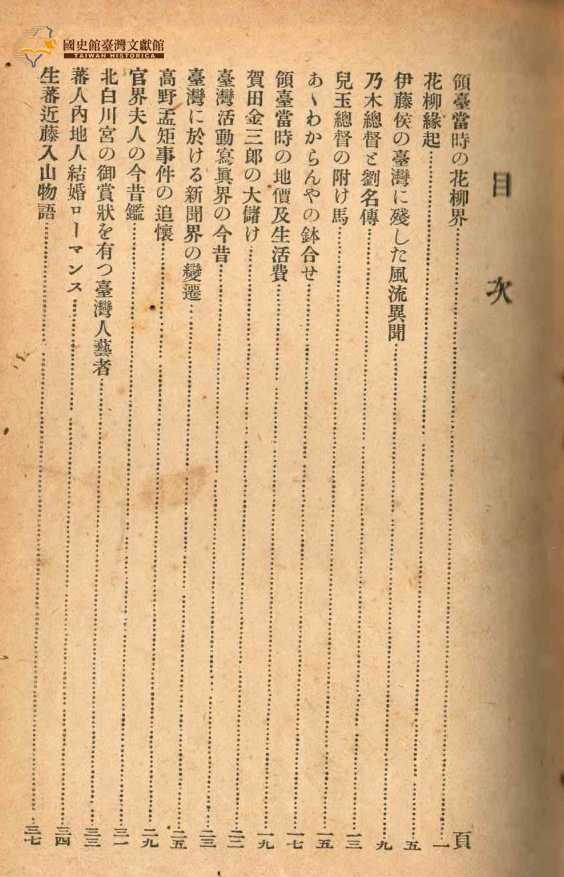 國史館臺灣文獻館
TAIWAN HISTORICA
目次
頁
領臺當時の花柳界……一
花柳緣起……五
伊藤侯の臺灣に殘した風流異聞……九
乃木總督と劉名傳……九
兒玉總督の附け馬……一三
あゝわからんやの鉢合せ……一五
領臺當時の地價及生活費……一七
賀田金三郎の大儲け……一九
臺灣活動寫眞界の今昔……二二
臺灣に於ける新聞界の變遷……二三
高野孟矩事件の追懷……二五
官界夫人の今昔鑑……二九
北白川宮の御賞狀を有つ臺灣人藝者……三一
蕃人內地人結婚ローマンス……三四
生蕃近藤入山物語……三七